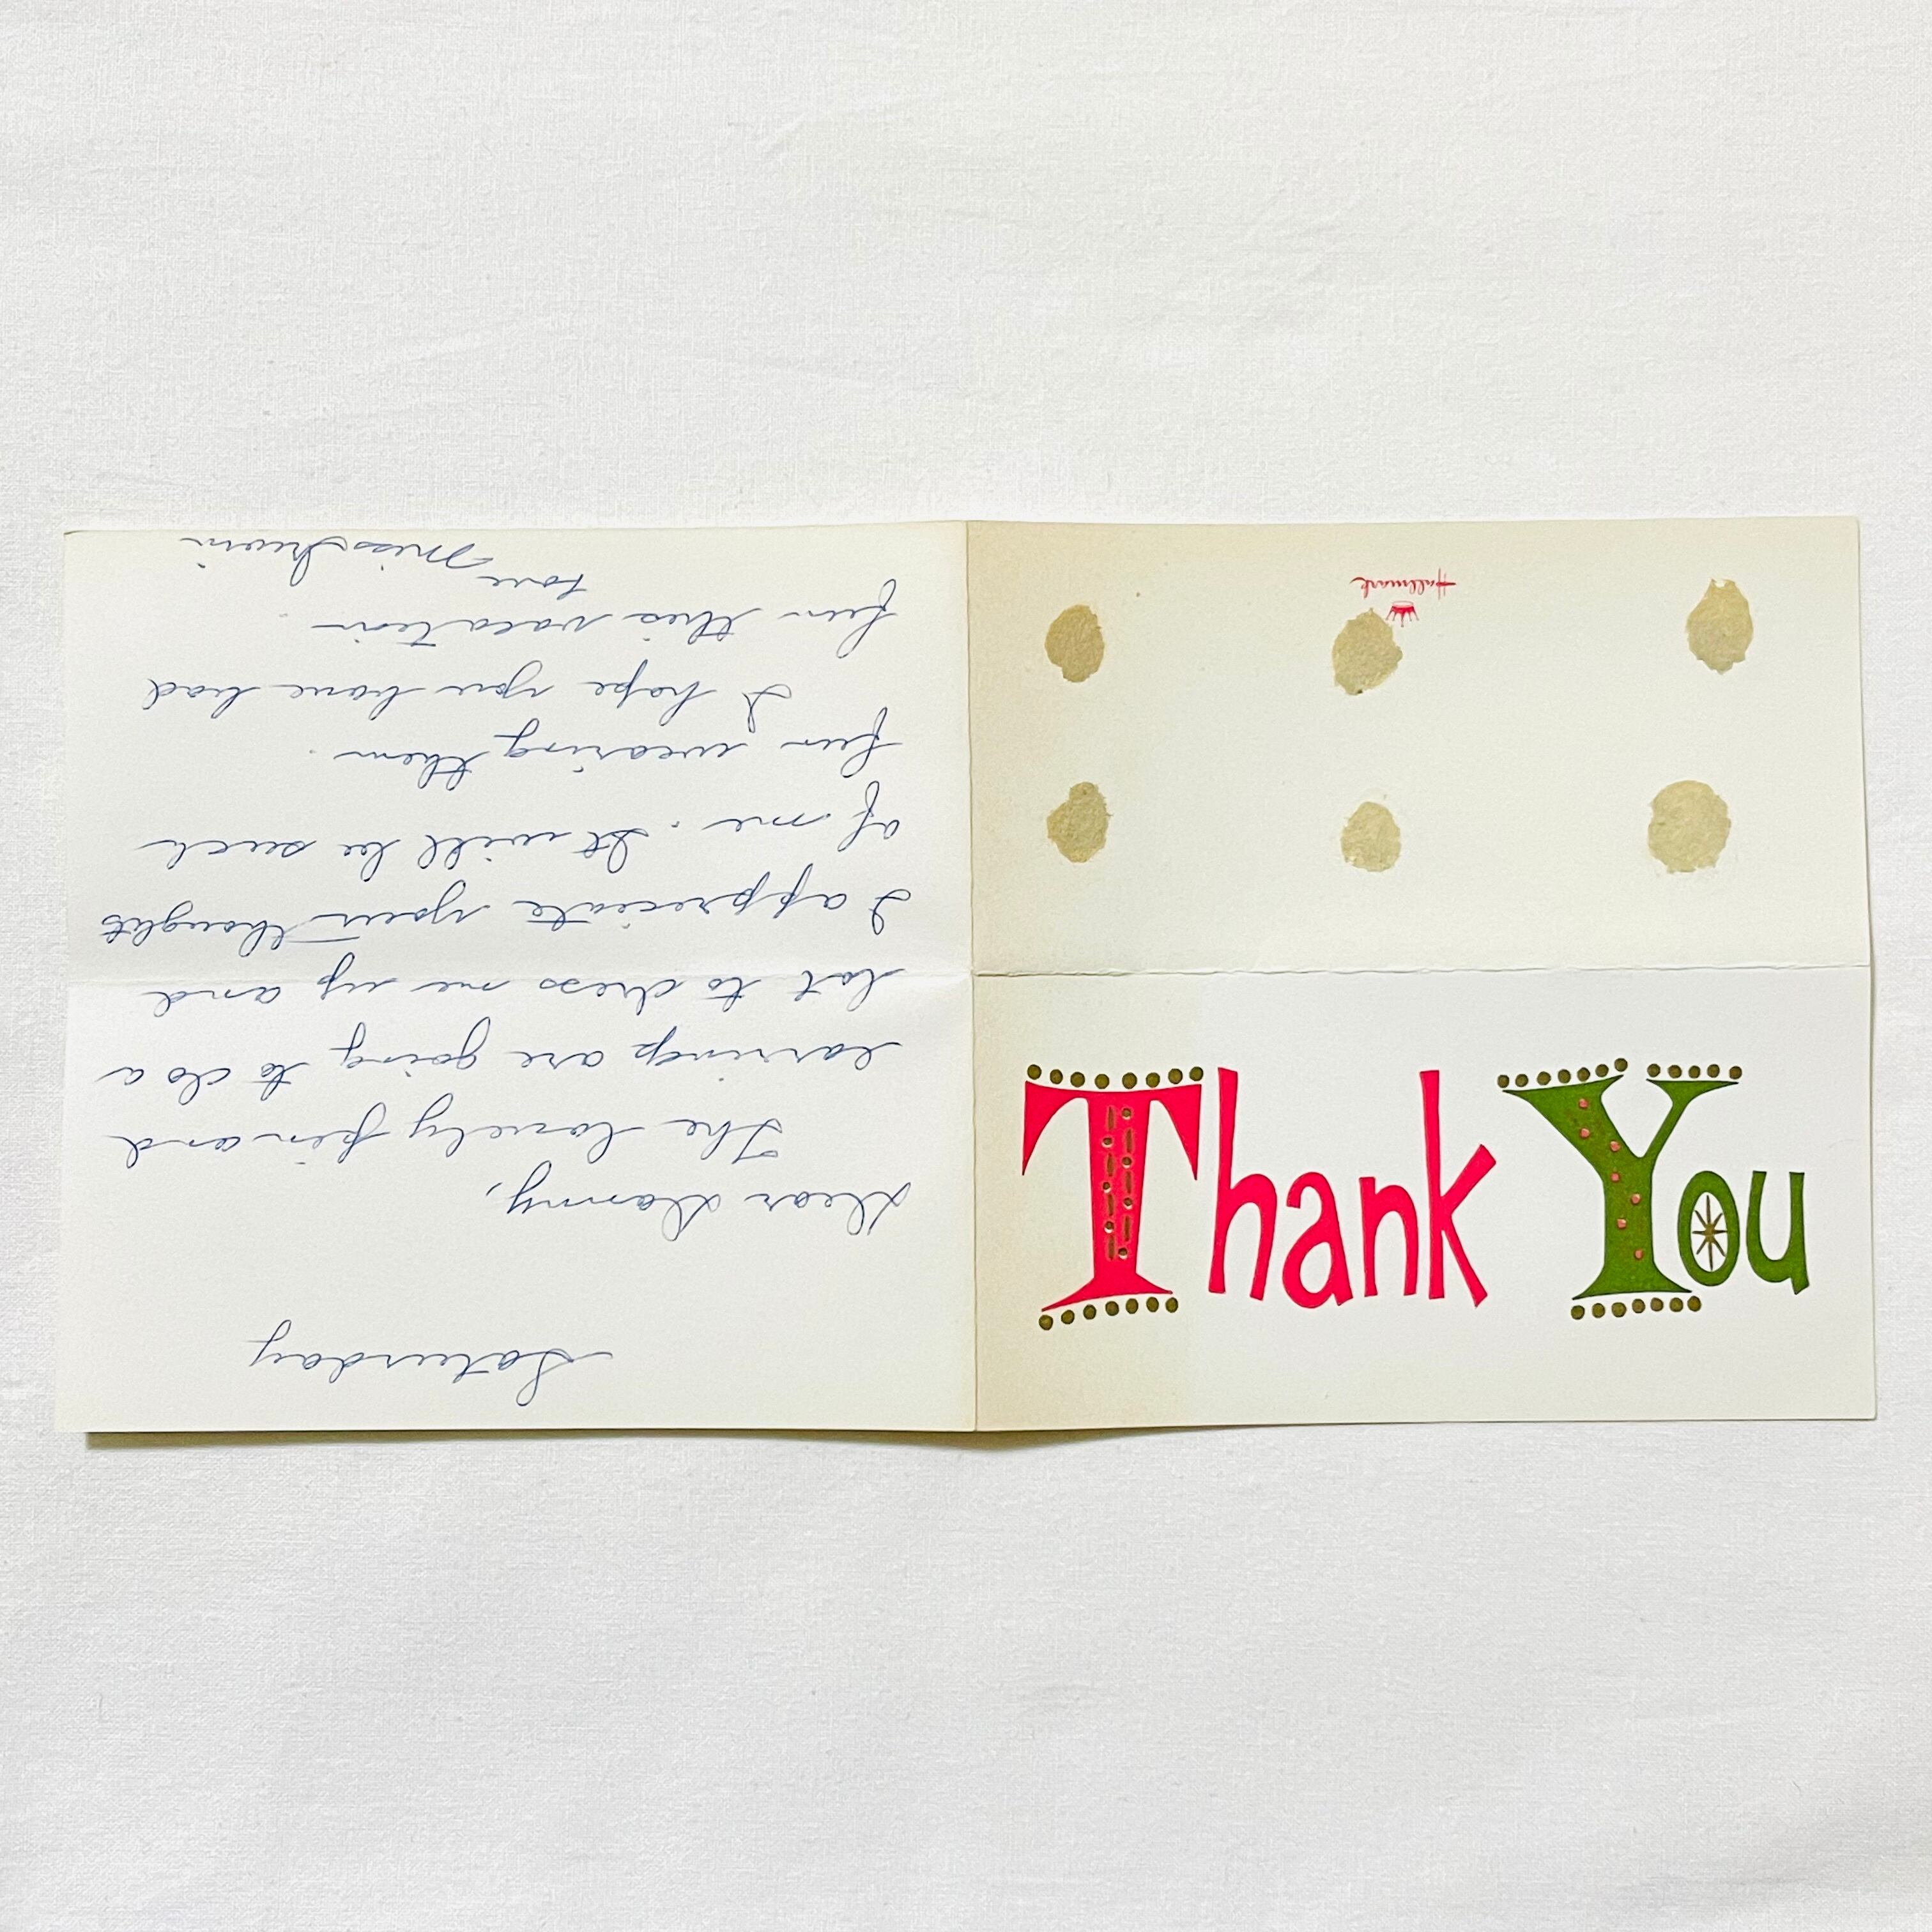 Thank You
Hallmark
Saturday
Dear Danny,
The lovely pin and
earrings are going to do a
lot to dress me up and
I appreciate your thought
of me. It will be such
fun wearing them.
I hope you have had
fun this vacation.
Love
Miss